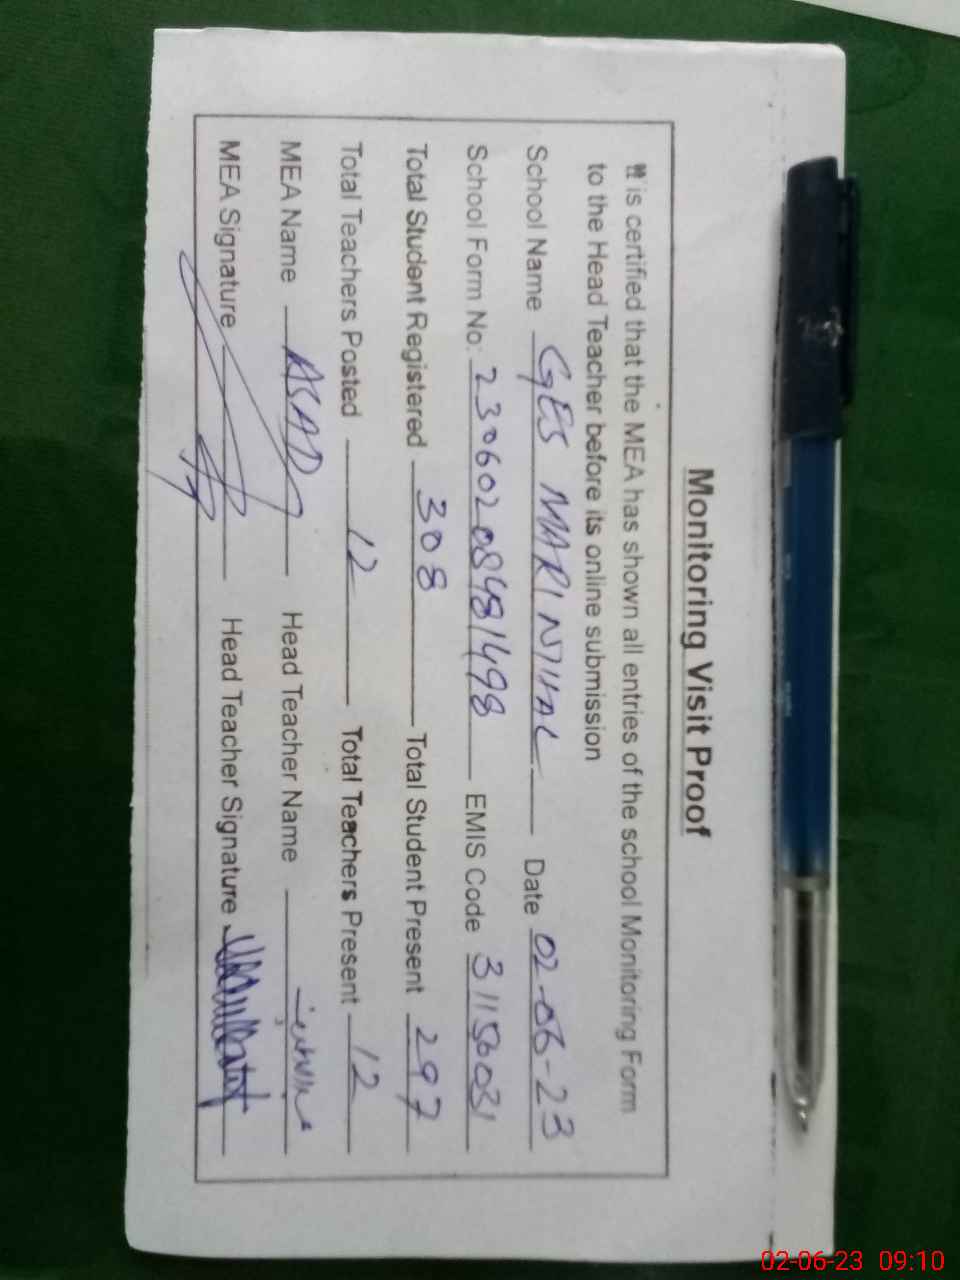 Monitoring Visit Proof
It is certified that the MEA has shown all entries of the school Monitoring Form
to the Head Teacher before its online submission
School Name GES MARI NIHAL Date 02-06-23
School Form No: 230602 08481498 EMIS Code 31150031
Total Student Registered 308 Total Student Present 297
Total Teachers Posted 12 Total Teachers Present 12
MEA Name ASAD Head Teacher Name
MEA Signature Head Teacher Signature
02-06-23 09:10